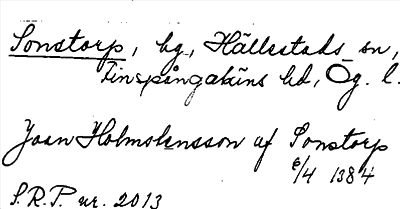 Sonstorp, bg, Hällestads sn,
Finspångaläns hd, Ög. l.
Joan Holmstensson af Sonstorp
6/4 1384
S.R.P. nr. 2013